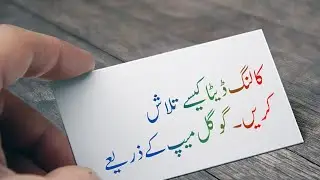 کالنگ ڈیٹا کیسے تلاش
کریں۔ گوگل میپ کے ذریعے